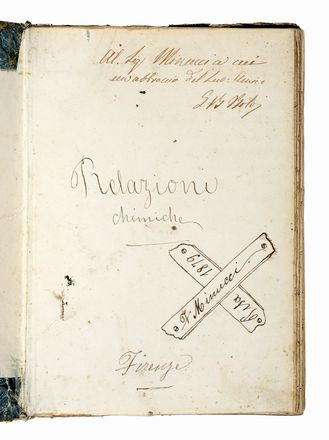 Al Sig Minucci a cui
un abbraccio del suo
Relazioni
chimiche
1879
V. Minucci
Pisa
Firenze